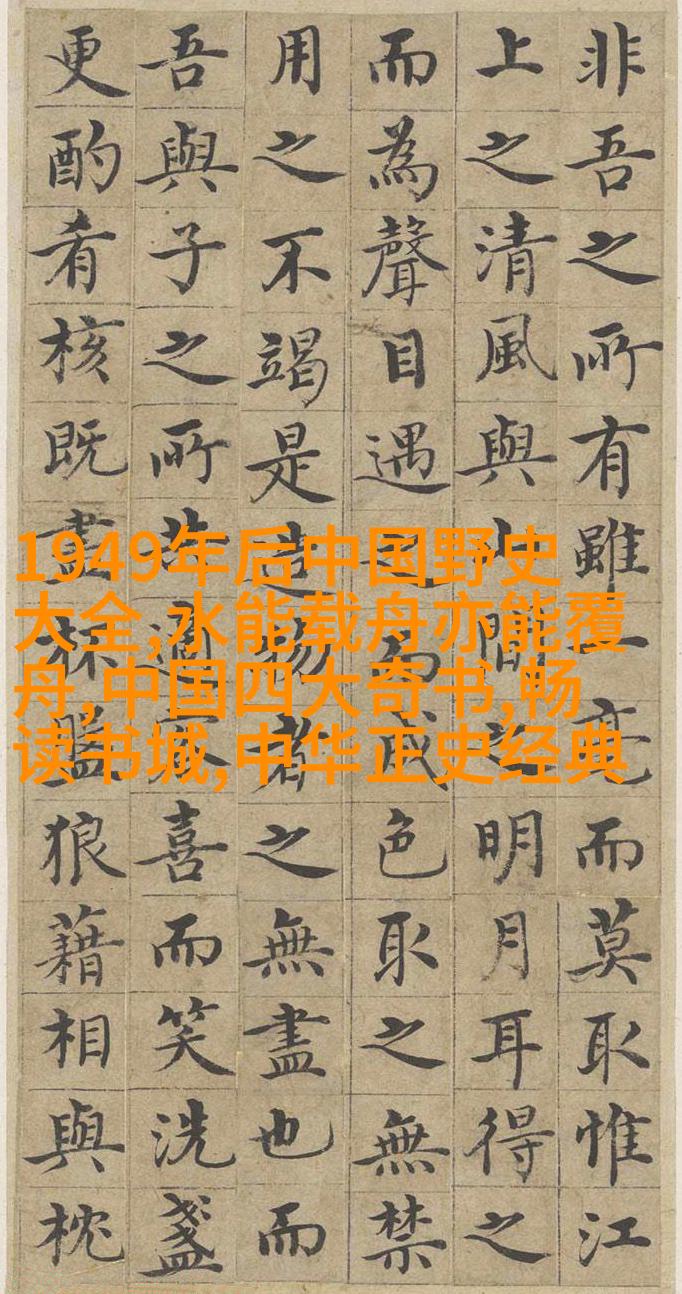 非吾之所有雖一毫而莫取惟江
上之清風與山間之明月耳得之
而為聲目遇之而成色取之無禁
用之不竭是造物者之無盡也而
吾與子之所適客喜而笑洗盞
更酌肴核既盡杯盤狼藉相與枕
1949年后中国野史
大全,水能载舟亦能覆
舟,中国四大奇书,畅
读书城,中华正史经典